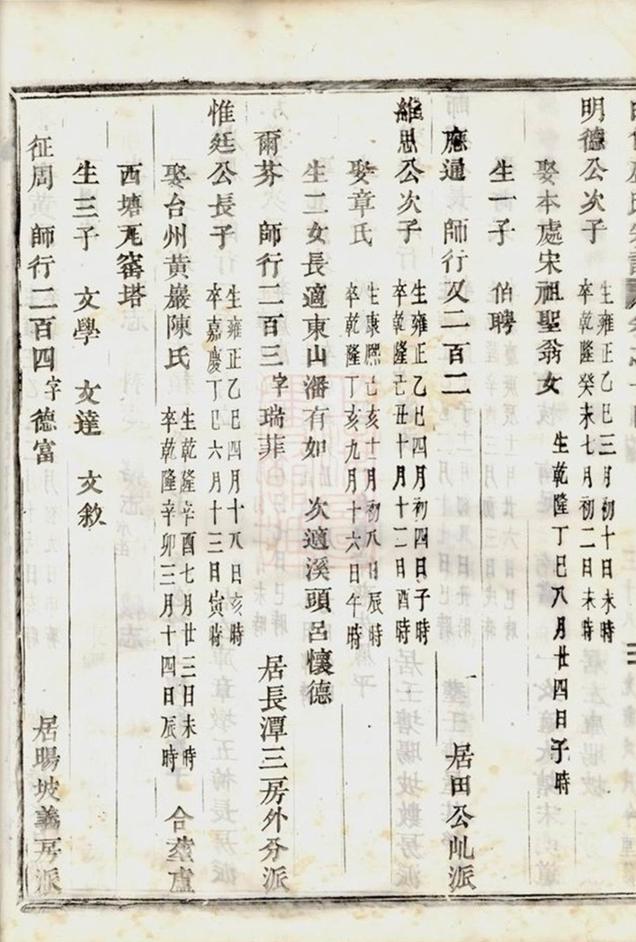 明德公次子
生雍正乙巳三月初十日未時
卒乾隆癸未七月初二日未時
娶本處宋祖聖翁女 生乾隆丁巳八月廿四日子時
生一子 伯聘
應通 師行又二百二 居田公乢派
維思公次子
生雍正乙巳四月初四日子時
卒乾隆己丑十月十二日酉時
娶章氏
生康熈己亥十二月初八日辰時
卒乾隆丁亥九月十六日午時
生二女長適東山潘有如 次適溪頭呂懷德
爾芬 師行二百三字瑞菲 居長潭三房外分派
惟廷公長子
生雍正乙巳四月十八日亥時
卒嘉慶丁巳六月十三日寅時
娶台州黃巖陳氏
生乾隆辛酉七月廿三日未時
卒乾隆辛卯三月十四日辰時
合塟盧
西塘瓦窰塔
生三子 文學 文達 文敘
征周 師行二百四字德富 居暘坡義房派